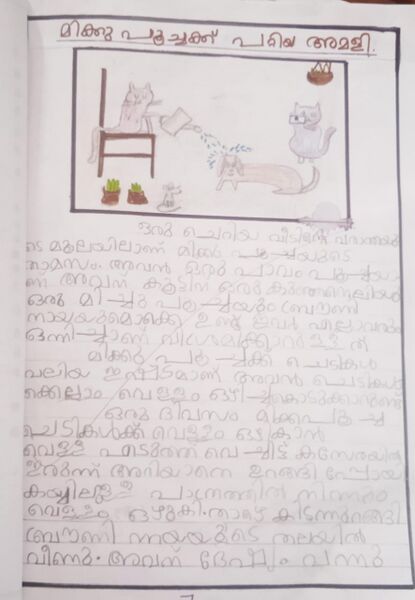 മിക്കു പൂച്ചക്ക് പറ്റിയ അമളി.
ഒരു ചെറിയ വീടിന്റെ വരാന്തയു
ടെ മൂലയിലാണ് മിക്കു പൂച്ചയുടെ
താമസം. അവൻ ഒരു പാവം പൂച്ചയാ
ണ് അവന് കൂട്ടിന് ഒരു കുഞ്ഞനെലിയും
ഒരു മിച്ചു പൂച്ചയും ബ്രൗണി
നായയുമൊക്കെ ഉണ്ട് ഇവർ എല്ലാവരും
ഒന്നിച്ചാണ് വിശ്രമിക്കാറുള്ളത്
മിക്കു പൂച്ചക്ക് ചെടികൾ
വലിയ ഇഷ്ടമാണ് അവൻ ചെടികൾ
ക്കെല്ലാം വെള്ളം ഒഴിച്ചുകൊടുക്കാറുണ്ട്
ഒരു ദിവസം മിക്കുപൂച്ച
ചെടികൾക്ക് വെള്ളം ഒഴിക്കാൻ
വെള്ളം എടുത്തു വെച്ചിട്ട് കസേരയിൽ
ഇരുന്ന് അറിയാതെ ഉറങ്ങി പോയി
കയ്യിലുള്ള പാത്രത്തിൽ നിന്നും
വെള്ളം ഒഴുകി. താഴെ കിടന്നുറങ്ങി
ബ്രൗണി നയയുടെ തലയിൽ
വീണു. അവന് ദേഷ്യം വന്നു